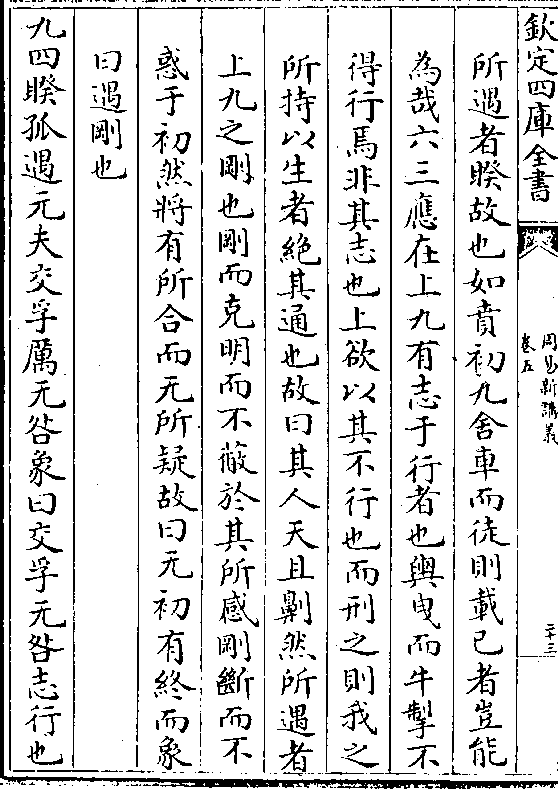 欽定四庫全書
周易新講義
卷五
二十三
所遇者睽故也如賁初九舍車而徒則載已者豈能
為哉六三應在上九有志于行者也輿曳而牛掣不
得行焉非其志也上欲以其不行也而刑之則我之
所持以生者絶其通也故曰其人天且劓然所遇者
上九之剛也剛而克明而不蔽於其所感剛斷而不
惑于初然將有所合而无所疑故曰无初有終而象
曰遇剛也
九四睽孤遇元夫交孚厲无咎象曰交孚无咎志行也